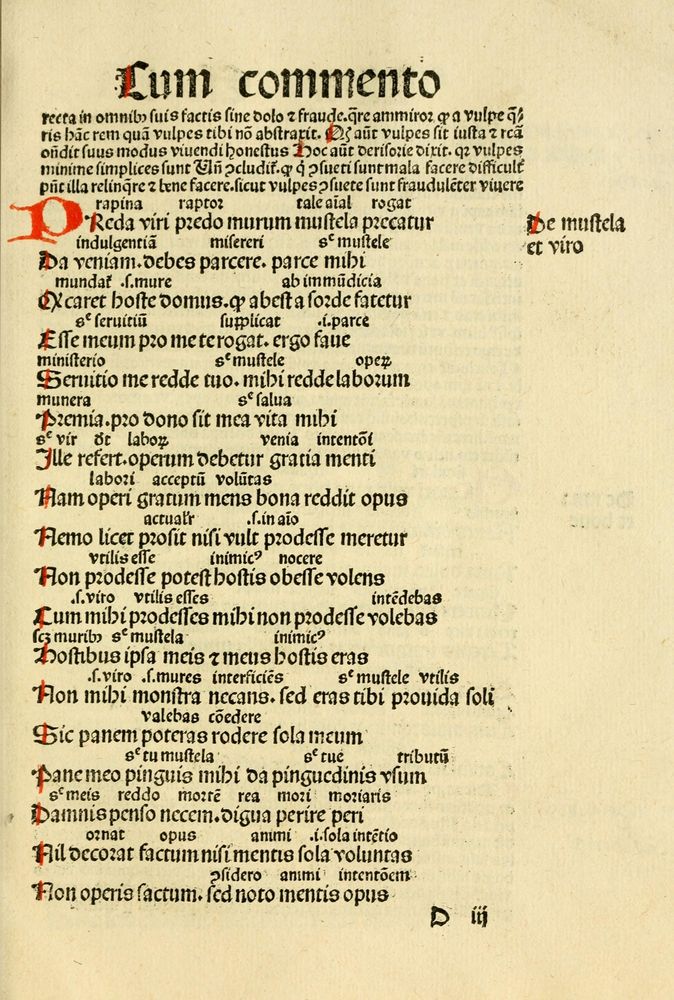 Cum commento
recta in omnibꝰ suis factis sine dolo ⁊ fraude. qre ammiror ꝙ a vulpe q̄-
ris hāc rem quā vulpes tibi nō abstraxit. Qꝫ aūt vulpes sit iusta ⁊ rcā
oñdit suus modus viuendi honestus Hoc aūt derisorie dixit. qꝛ vulpes
minime simplices sunt Uñ ꝯcludit᷑. ꝙ q̇ ꝯsueti sunt mala facere difficult᷑
pñt illa relinq̄re ⁊ bene facere. sicut vulpes ꝯsuete sunt fraudulēter viuere
rapina raptor tale aīal rogat
PReda viri predo murum mustela precatur
De mustela
et viro
indulgentiā misereri sᶜ mustele
Da veniam. debes parcere. parce mihi
mundat᷑ .s. mure ab immūdicia
Qꝫ caret hoste domus. ꝙ abest a sorde fatetur
sᶜ seruitiū supplicat .i. parce
Esse meum pro me te rogat. ergo faue
ministerio sᶜ mustele operꝝ
Seruitio me redde tuo. mihi redde laborum
munera sᶜ salua
Premia. pro dono sit mea vita mihi
sᶜ vir dt̄ laborꝝ venia intentōi
Ille refert. operum debetur gratia menti
labori acceptū volūtas
Nam operi gratum mens bona reddit opus
actualr̄ .s. in aīo
Nemo licet prosit nisi vult prodesse meretur
vtilis esse inimicꝰ nocere
Non prodesse potest hostis obesse volens
.s. viro vtilis esses intēdebas
Cum mihi prodesses mihi non prodesse volebas
scꝫ muribꝰ sᶜ mustela inimicꝰ
Hostibus ipsa meis ⁊ meus hostis eras
.s. viro .s. mures interficiēs sᶜ mustele vtilis
Non mihi monstra necans. sed eras tibi prouida soli
valebas cōedere
Sic panem poteras rodere sola meum
sᶜ tu mustela sᶜ tue tributū
Pane meo pinguis mihi da pinguedinis vsum
sᶜ meis reddo mortē rea mori moriaris
Damnis penso necem. digua perire peri
ornat opus animi .i. sola intētio
Nil decorat factum nisi mentis sola voluntas
ꝯsidero animi intentōem
Non operis factum. sed noto mentis opus
D iij